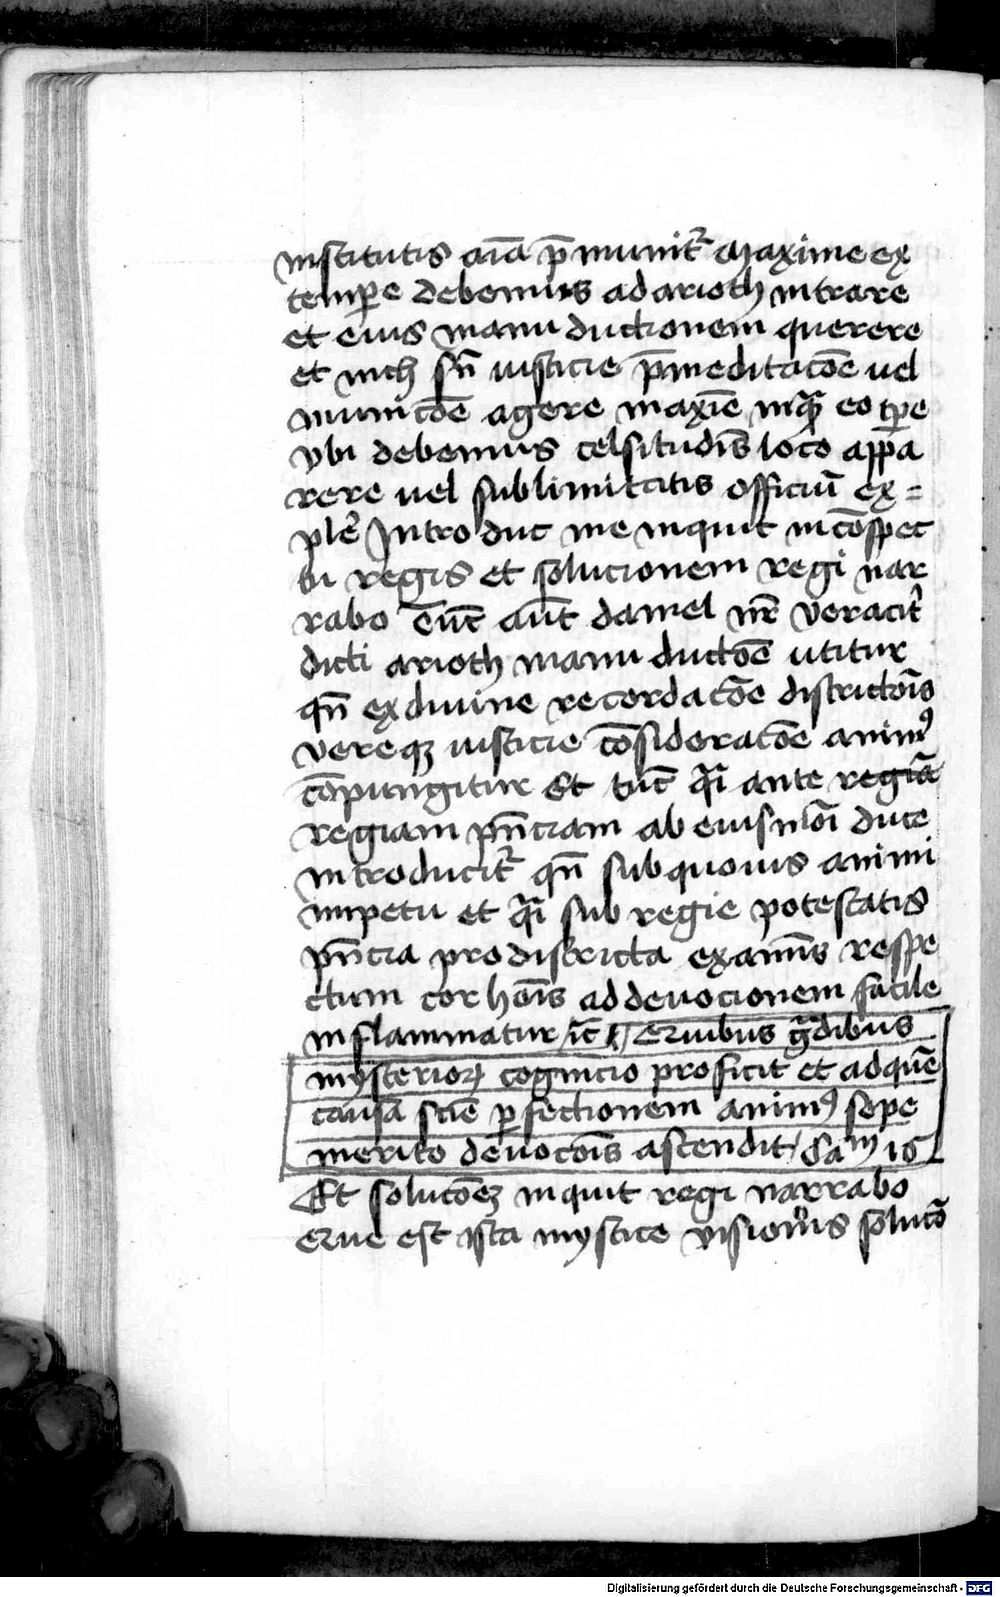 institutis aīa p̄munit᷑ Maxime ex
temꝑe debemus ad arioth intrare
et eius manu ductionem querere
et nich sn̄ iusticie p̄meditacōe vel
municōe agere maxīe inquā eo tꝑe
vbi debemus celsitudīs loco appa
rere uel sublimitatis officiū ex=
ple᷑ Intro duc me inquit in cōspec
tu regis et solucionem regi nar
rabo tūc aūt daniel nr̄ veracit᷑
dicti arioth manu ductōe utitur
qn̄ ex diuine recordacōe districtōīs
vereqꝫ iusticie cōsideracōe animꝰ
cōpungitur Et tūc q̄i ante regiā
regiam pn̄ciam ab eius mōi duce
introducit᷑ qn̄ sub quouis animi
impetu et q̄i sub regie potestatis
pn̄cia pro districta examīs respe
ctum cor hōīs ad deuocionem facile
inflammatur ic̄ quibus gᷓdibus
mysterioꝝ cognicio proficit et ad quē
causā scīe ꝑfectionem animꝰ sepe
merito deuocōīs ascendit / Cam 16
Et solucōeꝫ inquit regi narrabo
que est ista mystice visionis solucō
Digitalisierung gefördert durch die Deutsche Forschungsgemeinschaft - DFG